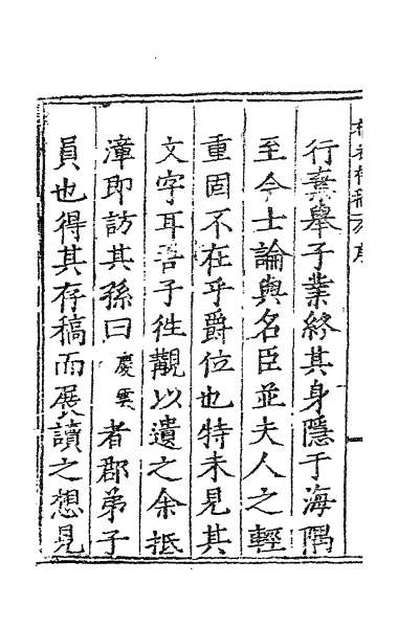 行棄舉子業終其身隱于海隅
至今士論與名臣並夫人之輕
重固不在乎爵位也特未見其
文字耳吾子徃觀以遺之余抵
漳即訪其孫曰慶雲者郡弟子
員也得其存稿而展讀之想見